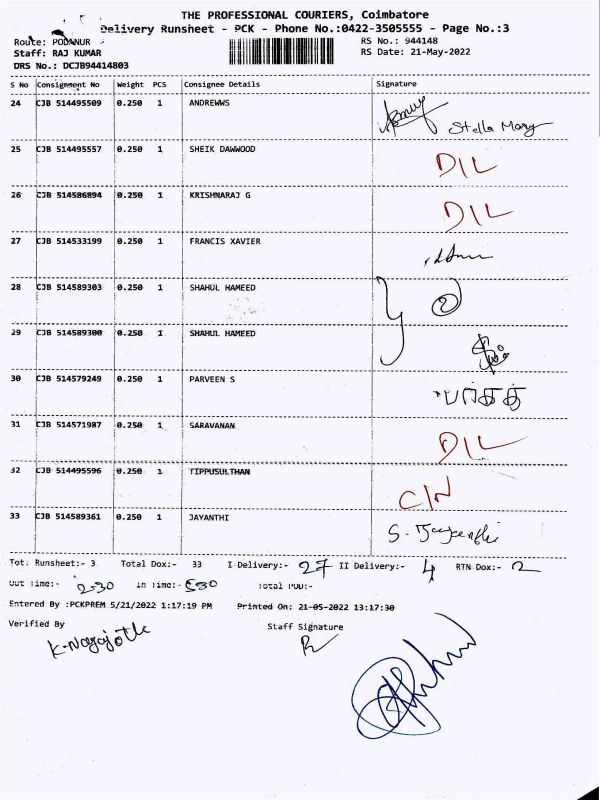 THE PROFESSIONAL COURIERS, Coimbatore
Delivery Runsheet - PCK - Phone No.:0422-3505555 - Page No.:3
Route: PODANUR RS No.: 944148
Staff: RAJ KUMAR RS Date: 21-May-2022
DRS No.: DCJB94414803
S No Consignment No Weight PCS Consignee Details Signature
24 CJB 514495509 0.250 1 ANDREWWS Stella Mary
25 CJB 514495557 0.250 1 SHEIK DAWWOOD DIL
26 CJB 514586894 0.250 1 KRISHNARAJ G DIL
27 CJB 514533199 0.250 1 FRANCIS XAVIER
28 CJB 514589303 0.250 1 SHAHUL HAMEED
29 CJB 514589300 0.250 1 SHAHUL HAMEED
30 CJB 514579249 0.250 1 PARVEEN S
31 CJB 514571987 0.250 1 SARAVANAN DIL
32 CJB 514495596 0.250 1 TIPPUSULTHAN C/N
33 CJB 514589361 0.250 1 JAYANTHI
Tot. Runsheet:- 3 Total Dox:- 33 I Delivery:- 27 II Delivery:- 4 RTN Dox:- 2
Out Time:- 2-30 In Time:- 5-30 Total POD:-
Entered By :PCKPREM 5/21/2022 1:17:19 PM Printed On: 21-05-2022 13:17:30
Verified By Staff Signature